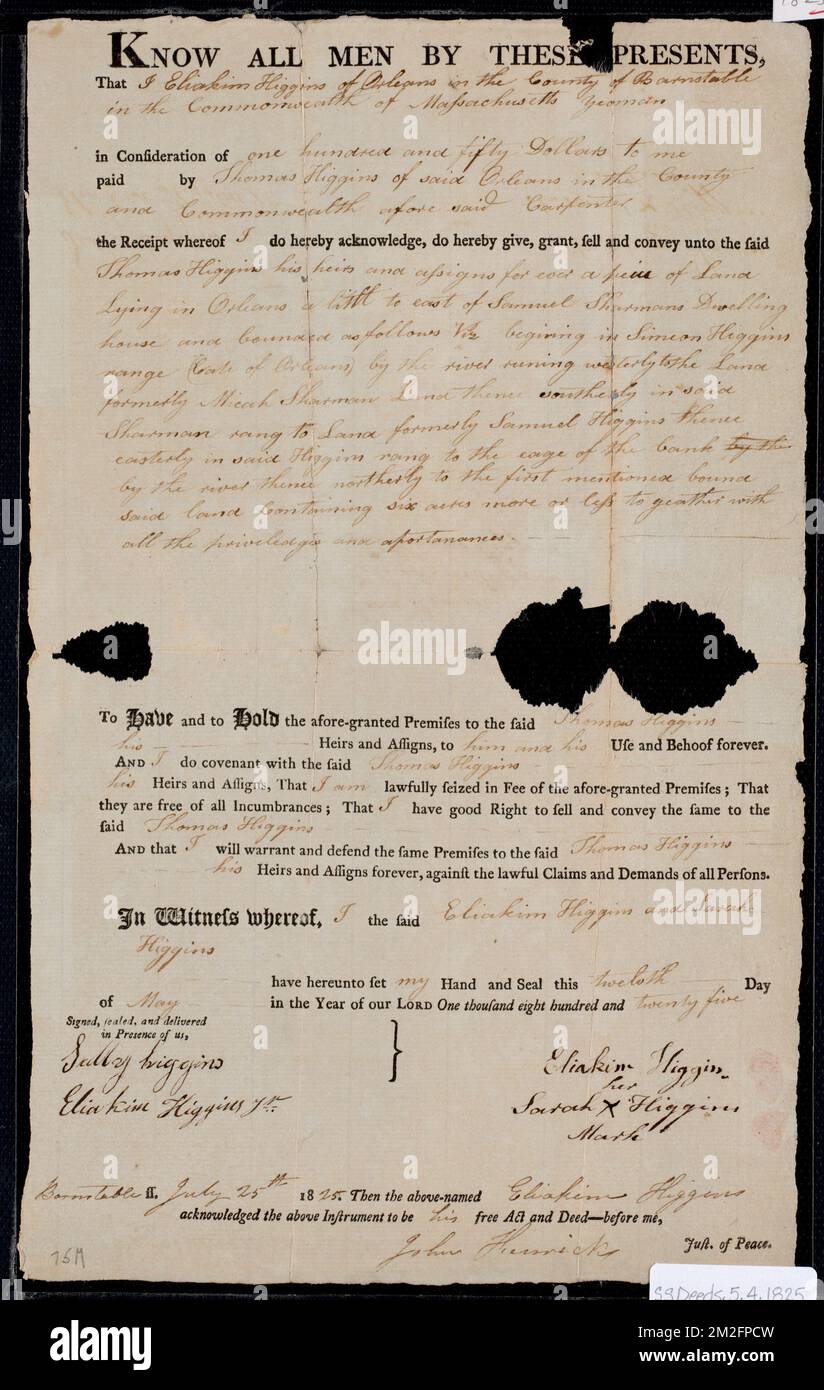 KNOW ALL MEN BY THESE PRESENTS,
That I Eliakim Higgins of Orleans in the County of Barnstable
in the Commonwealth of Massachusetts Yeoman
in Consideration of one hundred and fifty Dollars to me
paid by Thomas Higgins of said Orleans in the County
and Commonwealth afore said Carpenter
the Receipt whereof I do hereby acknowledge, do hereby give, grant, sell and convey unto the said
Thomas Higgins his heirs and assigns for ever a peice of Land
Lying in Orleans a littel to east of Samuel Sharmans Dwelling
house and bounded as follows Viz begining in Simeon Higgins
range (late of Orleans) by the river runing westerly to the Land
formerly Micah Sharman Land thence southerly in said
Sharman rang to Land formerly Samuel Higgins thence
easterly in said Higgins rang to the eage of the bank by the
by the river thence northerly to the first mentioned bound
said land Containing six acres more or less to geather with
all the priveledgs and aportanances.
To Have and to Hold the afore-granted Premises to the said Thomas Higgins
his Heirs and Assigns, to him and his Use and Behoof forever.
AND I do covenant with the said Thomas Higgins
his Heirs and Assigns, That I am lawfully seized in Fee of the afore-granted Premises; That
they are free of all Incumbrances; That I have good Right to sell and convey the same to the
said Thomas Higgins
AND that I will warrant and defend the same Premises to the said Thomas Higgins
his Heirs and Assigns forever, against the lawful Claims and Demands of all Persons.
In Witness whereof, I the said Eliakim Higgins and Sarah
Higgins
have hereunto set my Hand and Seal this twelvth Day
of May in the Year of our LORD One thousand eight hundred and twenty five
Signed, sealed, and delivered
in Presence of us,
Sally higgins
Eliakim Higgins Jr.
}
Eliakim Higgins
her
Sarah X Higgins
Mark
Barnstable ss. July 25th 1825. Then the above-named Eliakim Higgins
acknowledged the above Instrument to be his free Act and Deed—before me,
John Kenrick Just. of Peace.
75M
SSDeeds.5.4.1825
alamy
Image ID: 2M2FPCW
www.alamy.com